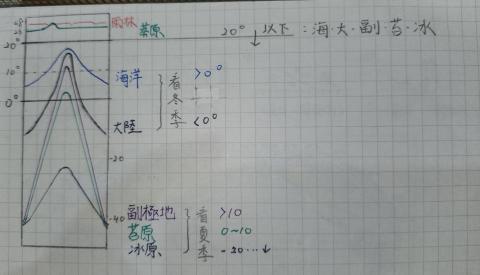 28 雨林
25 莽原
20° 20° 以下:海·大·副·苔·冰
海洋 >0°
10° 看冬季
0°
大陸 <0°
-20
-40 副極地 >10
苔原 看夏季 0~10
冰原 -20…↓